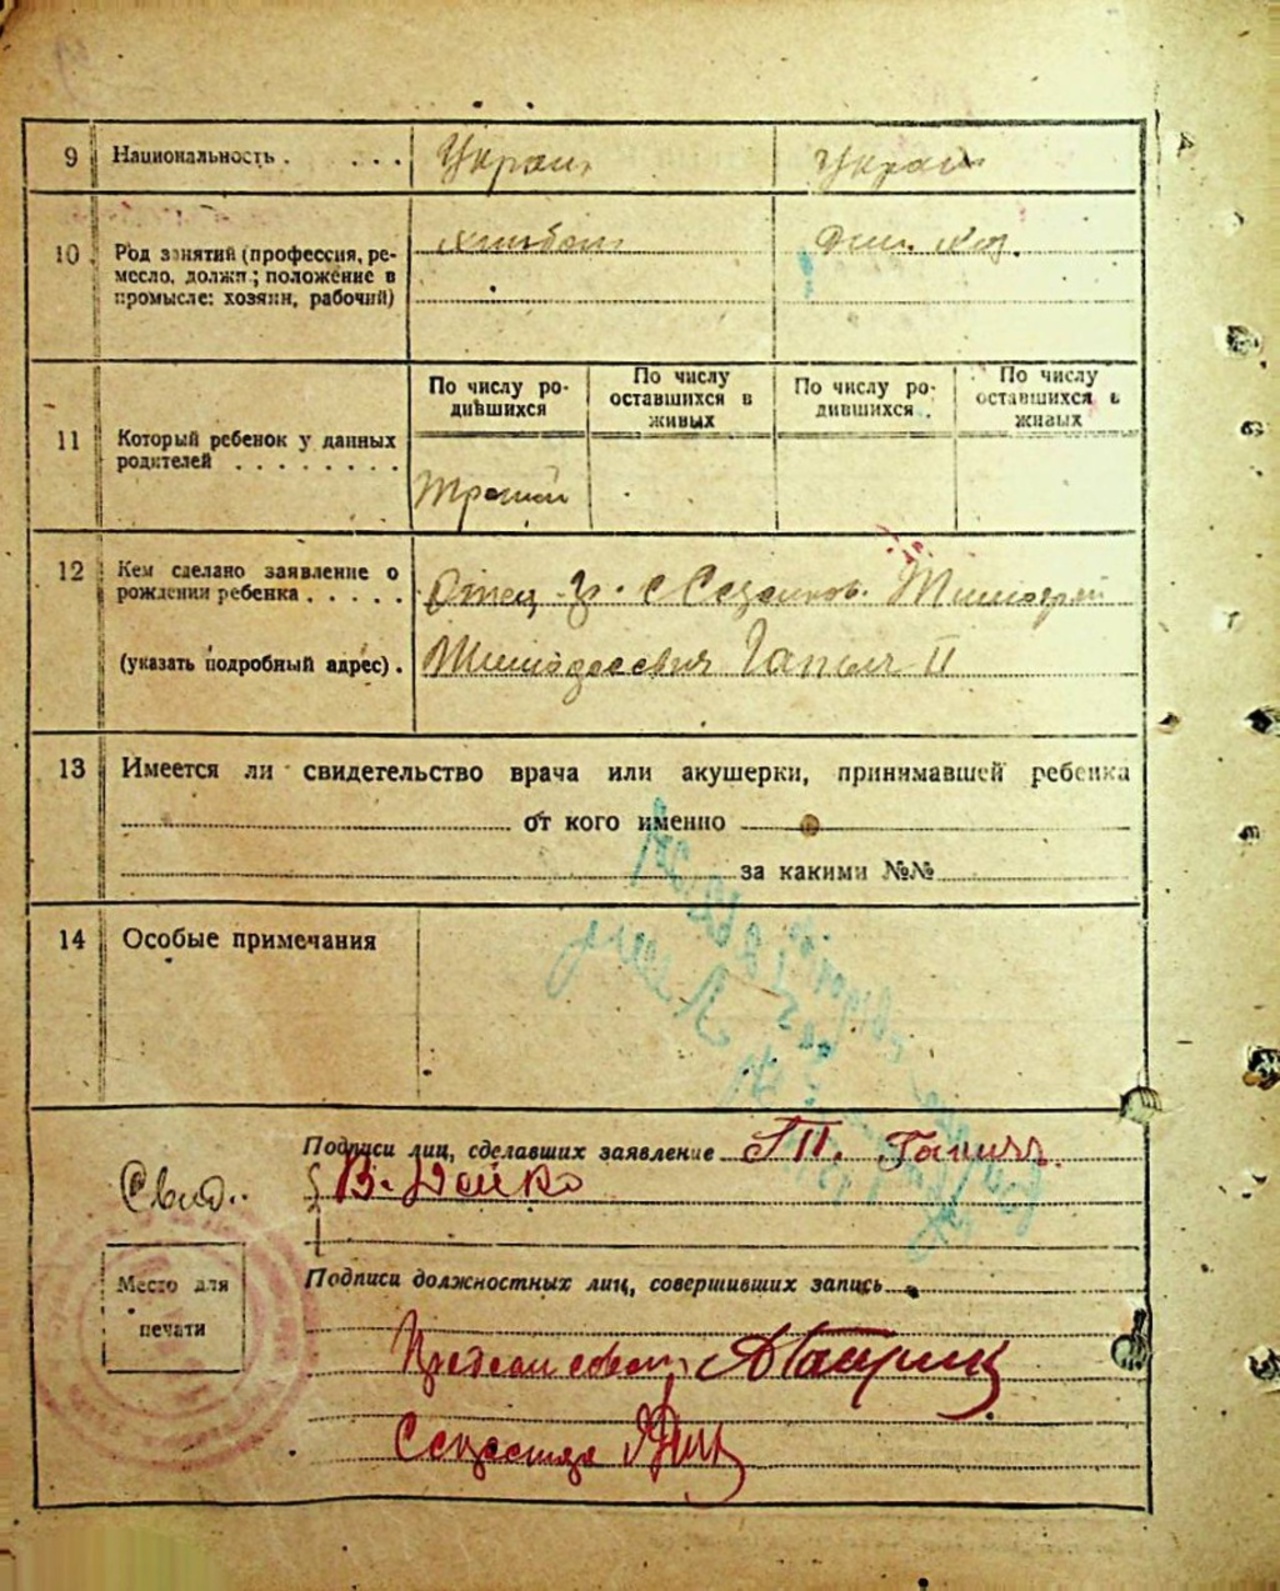 9 Национальность . . . . Украин. Украин
10. Род занятий (профессия, ре-
месло, должн.; положение в
промысле: хозяин, рабочий)
хлебоп. дом. хоз.
По числу ро-
дившихся
По числу
оставшихся в
живых
По числу ро-
дившихся .
По числу
оставшихся в
живых
11 Который ребенок у данных
родителей . . . . . . . .
Третий
12 Кем сделано заявление о
рождении ребенка . . . . .
(указать подробный адрес) .
Отец гр. с
Тимофеевич Гапич II
13 Имеется ли свидетельство врача или акушерки, принимавшей ребенка
от кого именно
за какими №№
14 Особые примечания
Подписи лиц, сделавших заявление Т П. Гапич.
Свид. В. Дейко
Подписи должностных лиц, совершивших запись
Место для
печати